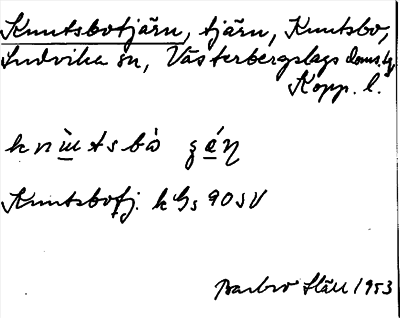 Knutsbotjärn, tjärn, Knutsbo,
Ludvika sn, Västerbergslags doms.
Kopp. l.
Knutsbotj. kGs 90 SV
Barbro Ståll 1953